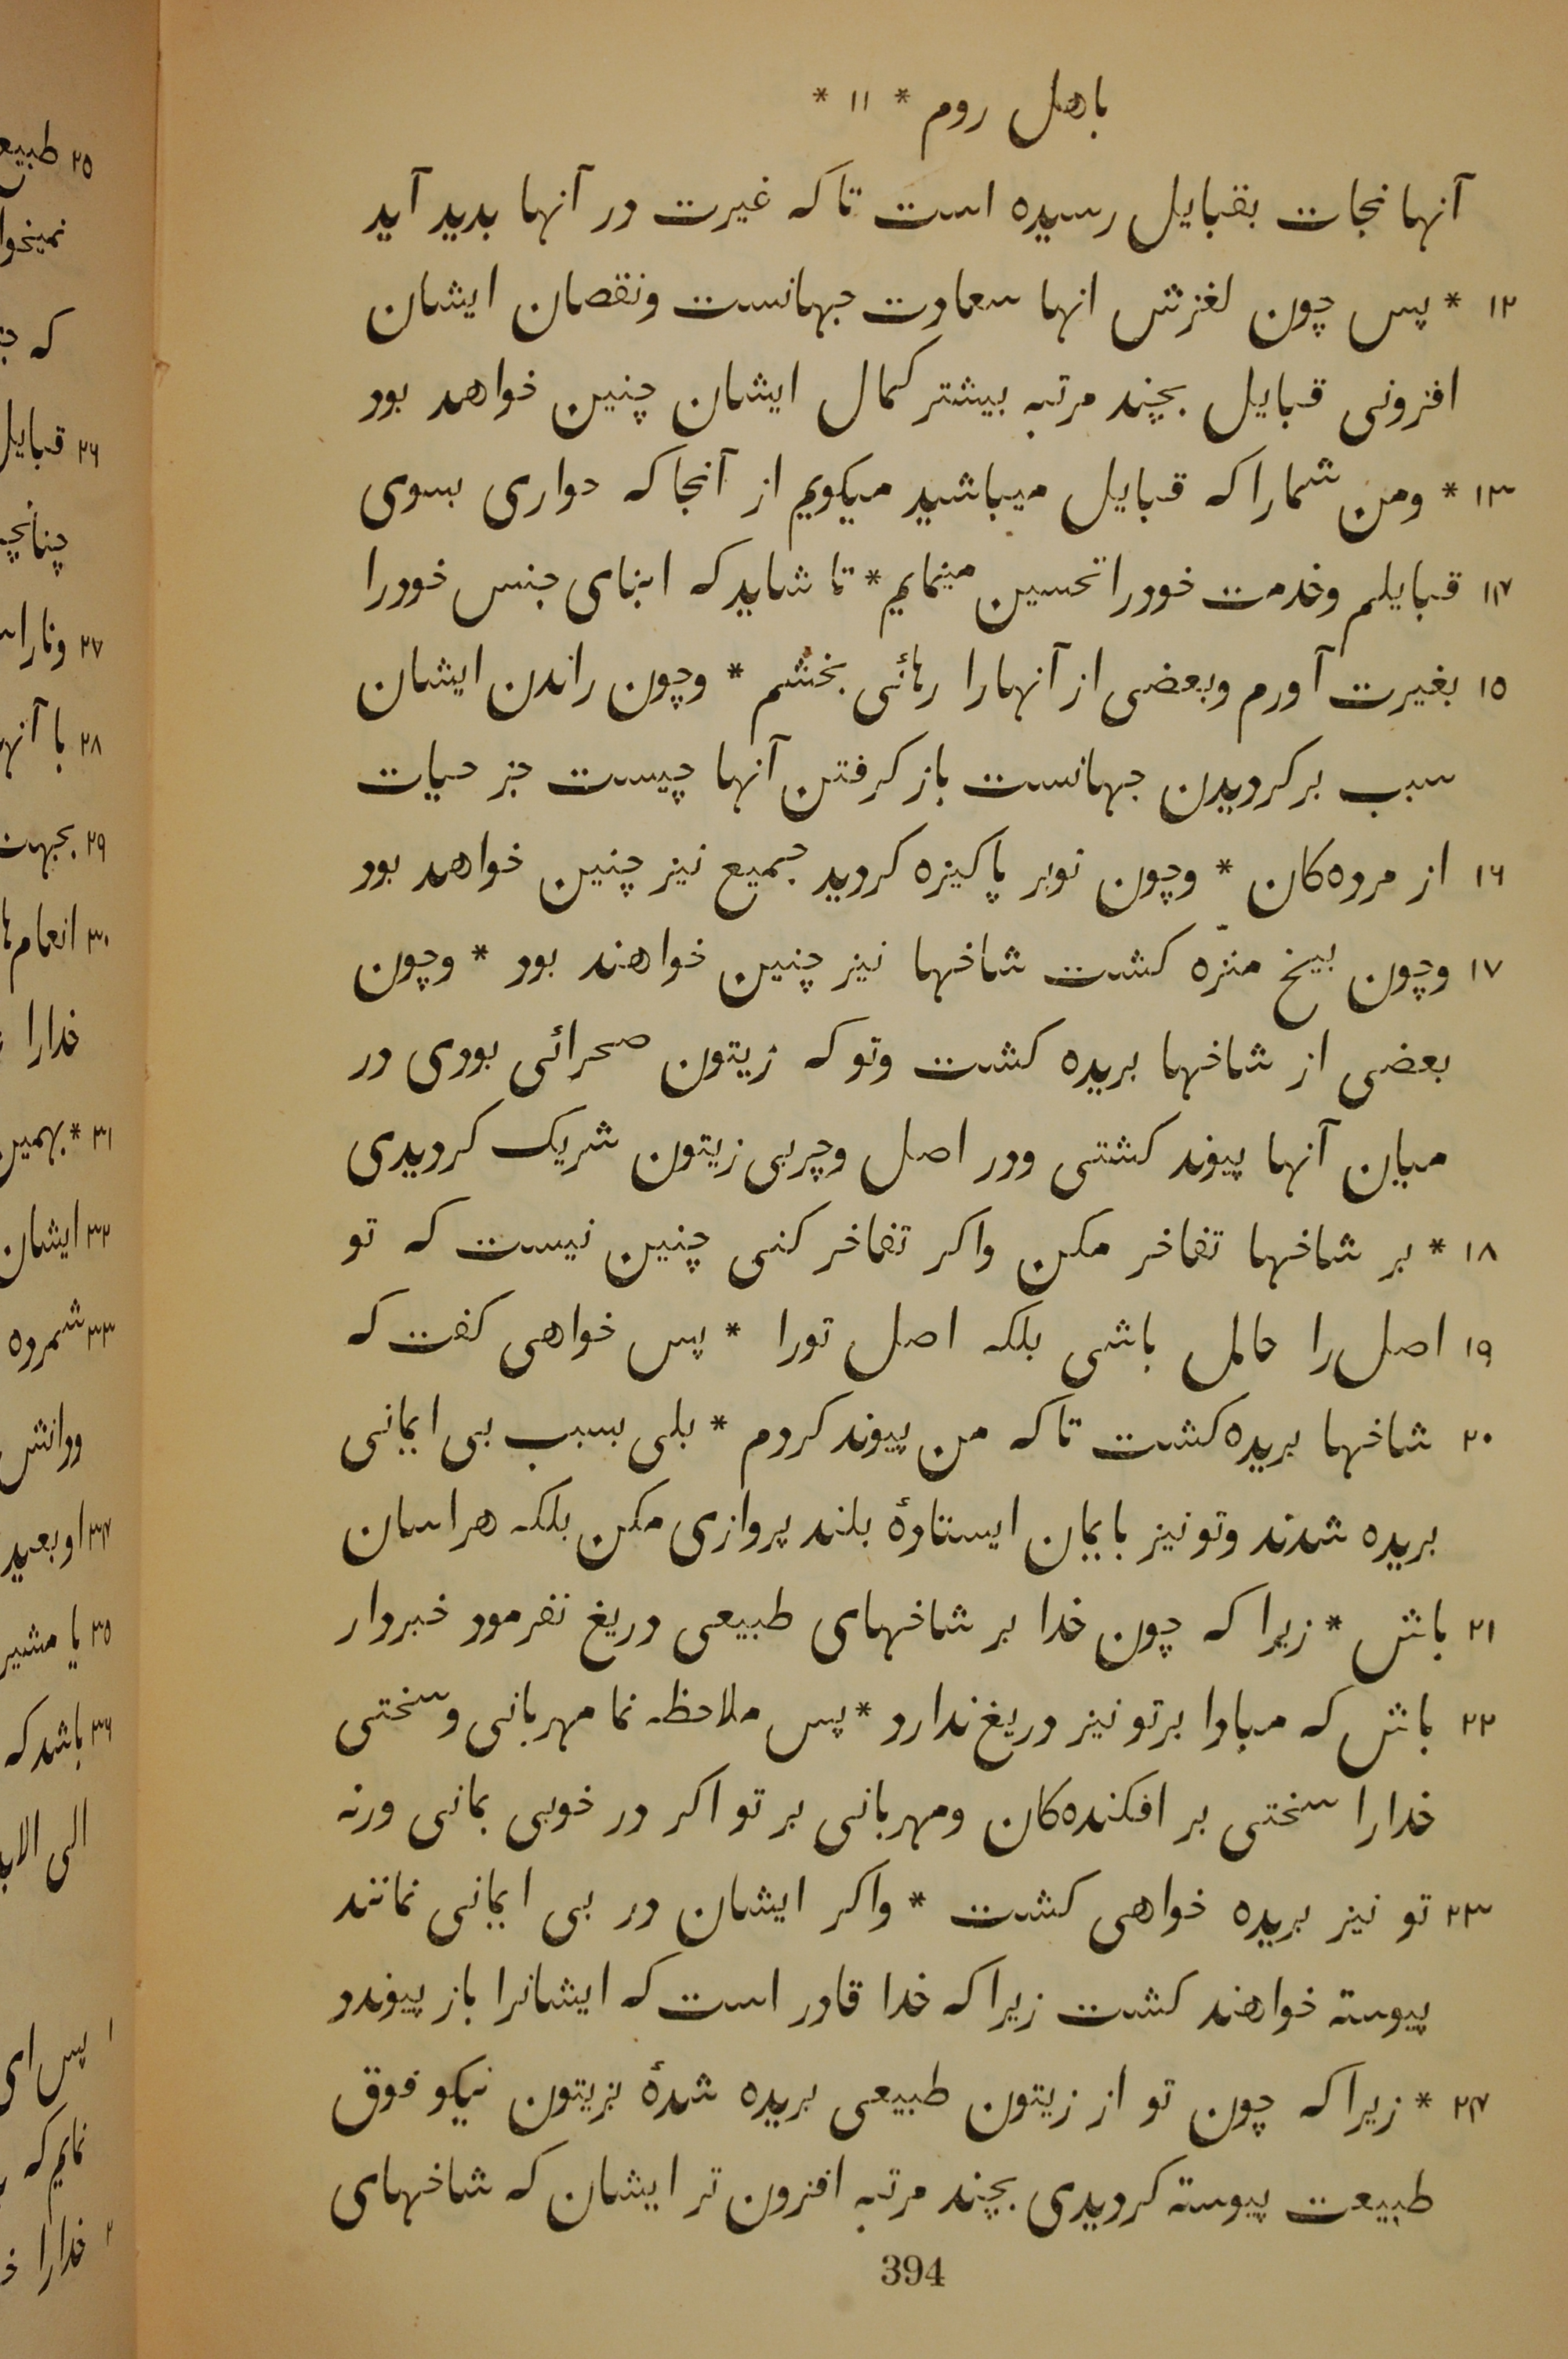 باهل روم * ١١ *
آنها نجات بقبایل رسیده است تا که غیرت در آنها بدید آید
١٢ * پس چون لغزش انها سعادت جهانست ونقصان ایشان
افزونی قبایل بچند مرتبه بیشتر کمال ایشان چنین خواهد بود
١٣ * ومن شمارا که قبایل میباشید میکویم از آنجا که حواری بسوی
١٤ قبایلم وخدمت خودرا تحسین مینمایم * تا شاید که ابنای جنس خودرا
١٥ بغیرت آورم وبعضی از آنهارا رهائی بخشم * وچون راندن ایشان
سبب بر کردیدن جهانست باز کرفتن آنها چیست جز حیات
١٦ از مرده‌کان * وچون نوبر پاکیزه کردید جمیع نیز چنین خواهد بود
١٧ وچون بیخ منزّه کشت شاخها نیز چنین خواهند بود * وچون
بعضی از شاخها بریده کشت وتو که زیتون صحرائی بودی در
میان آنها پیوند کشتی ودر اصل وچربی زیتون شریک کردیدی
١٨ * بر شاخها تفاخر مکن واکر تفاخر کنی چنین نیست که تو
١٩ اصل را حامل باشی بلکه اصل تورا * پس خواهی کفت که
٢٠ شاخها بریده کشت تا که من پیوند کردم * بلی بسبب بی ایمانی
بریده شدند وتو نیز بایمان ایستادهٔ بلند پروازی مکن بلکه هراسان
٢١ باش * زیرا که چون خدا بر شاخهای طبیعی دریغ نفرمود خبردار
٢٢ باش که مبادا بر تو نیز دریغ ندارد * پس ملاحظه نما مهربانی وسختی
خدارا سختی بر افکنده‌کان ومهربانی بر تو اکر در خوبی بمانی ورنه
٢٣ تو نیز بریده خواهی کشت * واکر ایشان در بی ایمانی نمانند
پیوسته خواهند کشت زیرا که خدا قادر است که ایشانرا باز پیوندد
٢٤ * زیرا که چون تو از زیتون طبیعی بریده شدهٔ بزیتون نیکو فوق
طبیعت پیوسته کردیدی بچند مرتبه افزون تر ایشان که شاخهای
394
٢٥ طبیع
که
٢٦ قبایل
٢٧
٢٨ با
٢٩
٣٠ انعام
خدارا
٣١ * بهمین
٣٢ ایشان
٣٣ شمرده
ودانش
٣٤
٣٥ یا مشیر
٣٦ باشد که
الی
١ پس ای
نمایم که
٢ خدارا